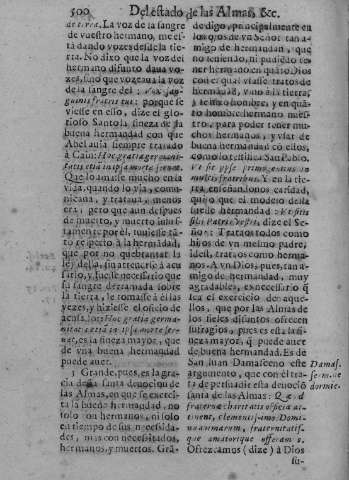 500 Del estado de las Almas, &c.
de tierra. La voz de la sangre
de vuestro hermano, me es-
tà dando vozes desde la tier-
ra. No dixo que la voz del
hermano difunto daua vo-
zes, sino que vozeaua la voz
de la sangre del: Vox san-
guinis fratris tui: porque se
viesse en esto, dize el glo-
rioso Santo la fineza de la
buena hermandad con que
Abel auia siempre tratado
à Cain: Hoc gratia germani-
tatis etiã in ipsa morte seruat.
Que lo amasse mucho en la
vida, quando lo via, comu-
nicaua, y trataua, menos
era; pero que aun despues
de muerto, y muerto
respecto à la hermãdad,
que por no quebrantar la
ley della, su
y fuesse necessario que
su sangre derramada sobre
la tierra, le tomasse à el las
vezes, y hiziesse el oficio de
Hoc gratia germa-
nitatis etiã in ipsa morte ser-
uat, es la fineza mayor, que
de vna buena hermandad
puede auer.
1 Grande, pues, es la gra-
cia de la santa deuocion de
las Almas, en que se exerci-
ta la buena hermandad, no
solo con hermanos, ni solo
en tiempo de sus necessida-
des, mas con necessitados,
hermanos, y muertos. Grã-
de digo, principalmente en
los ojos de vn Señor tan a-
migo de hermandad, que
no teniendo, ni pudiẽdo te-
ner hermano en quãto Dios
con el qual tratasse estos de
hermãdad, vino à la tierra,
y se hizo hombre, y en quã-
to hombre hermano nues-
tro, para poder tener mu-
chos hermanos, y vsar de
buena hermandad cõ ellos,
como lo testifica San Pablo.
Vt sit ipse primogenitus in
multis fratribus. Y en la tie-
rra, enseñandonos caridad,
quiso que el modelo della
fuesse hermandad: Vt sitis
filij Patris vestri, dize el Se-
ñor: Trataos todos como
hijos de vn mesmo padre,
idest, trataos como herma-
nos. A vn Dios, pues, tan a-
migo de hermandad, muy
agradables, es necessario q̃
sea el exercicio de aque-
llos, que por las Almas de
los fieles difuntos ofrecen
sufragios, pues es esta la fi-
neza mayor, q̃ puede auer
de buena hermandad. Es de
San Iuan Damasceno este
argumento, que con èl tra-
ta de persuadir esta deuociõ
santa de las Almas: Quæ ad
fraternæ charitatis officia at-
tinent, clementissimo Domi-
no animarum, fraternitatis-
que amatorique offeramus.
Ofrezcamos (dize) à Dios
su-
Damas.
dormie.